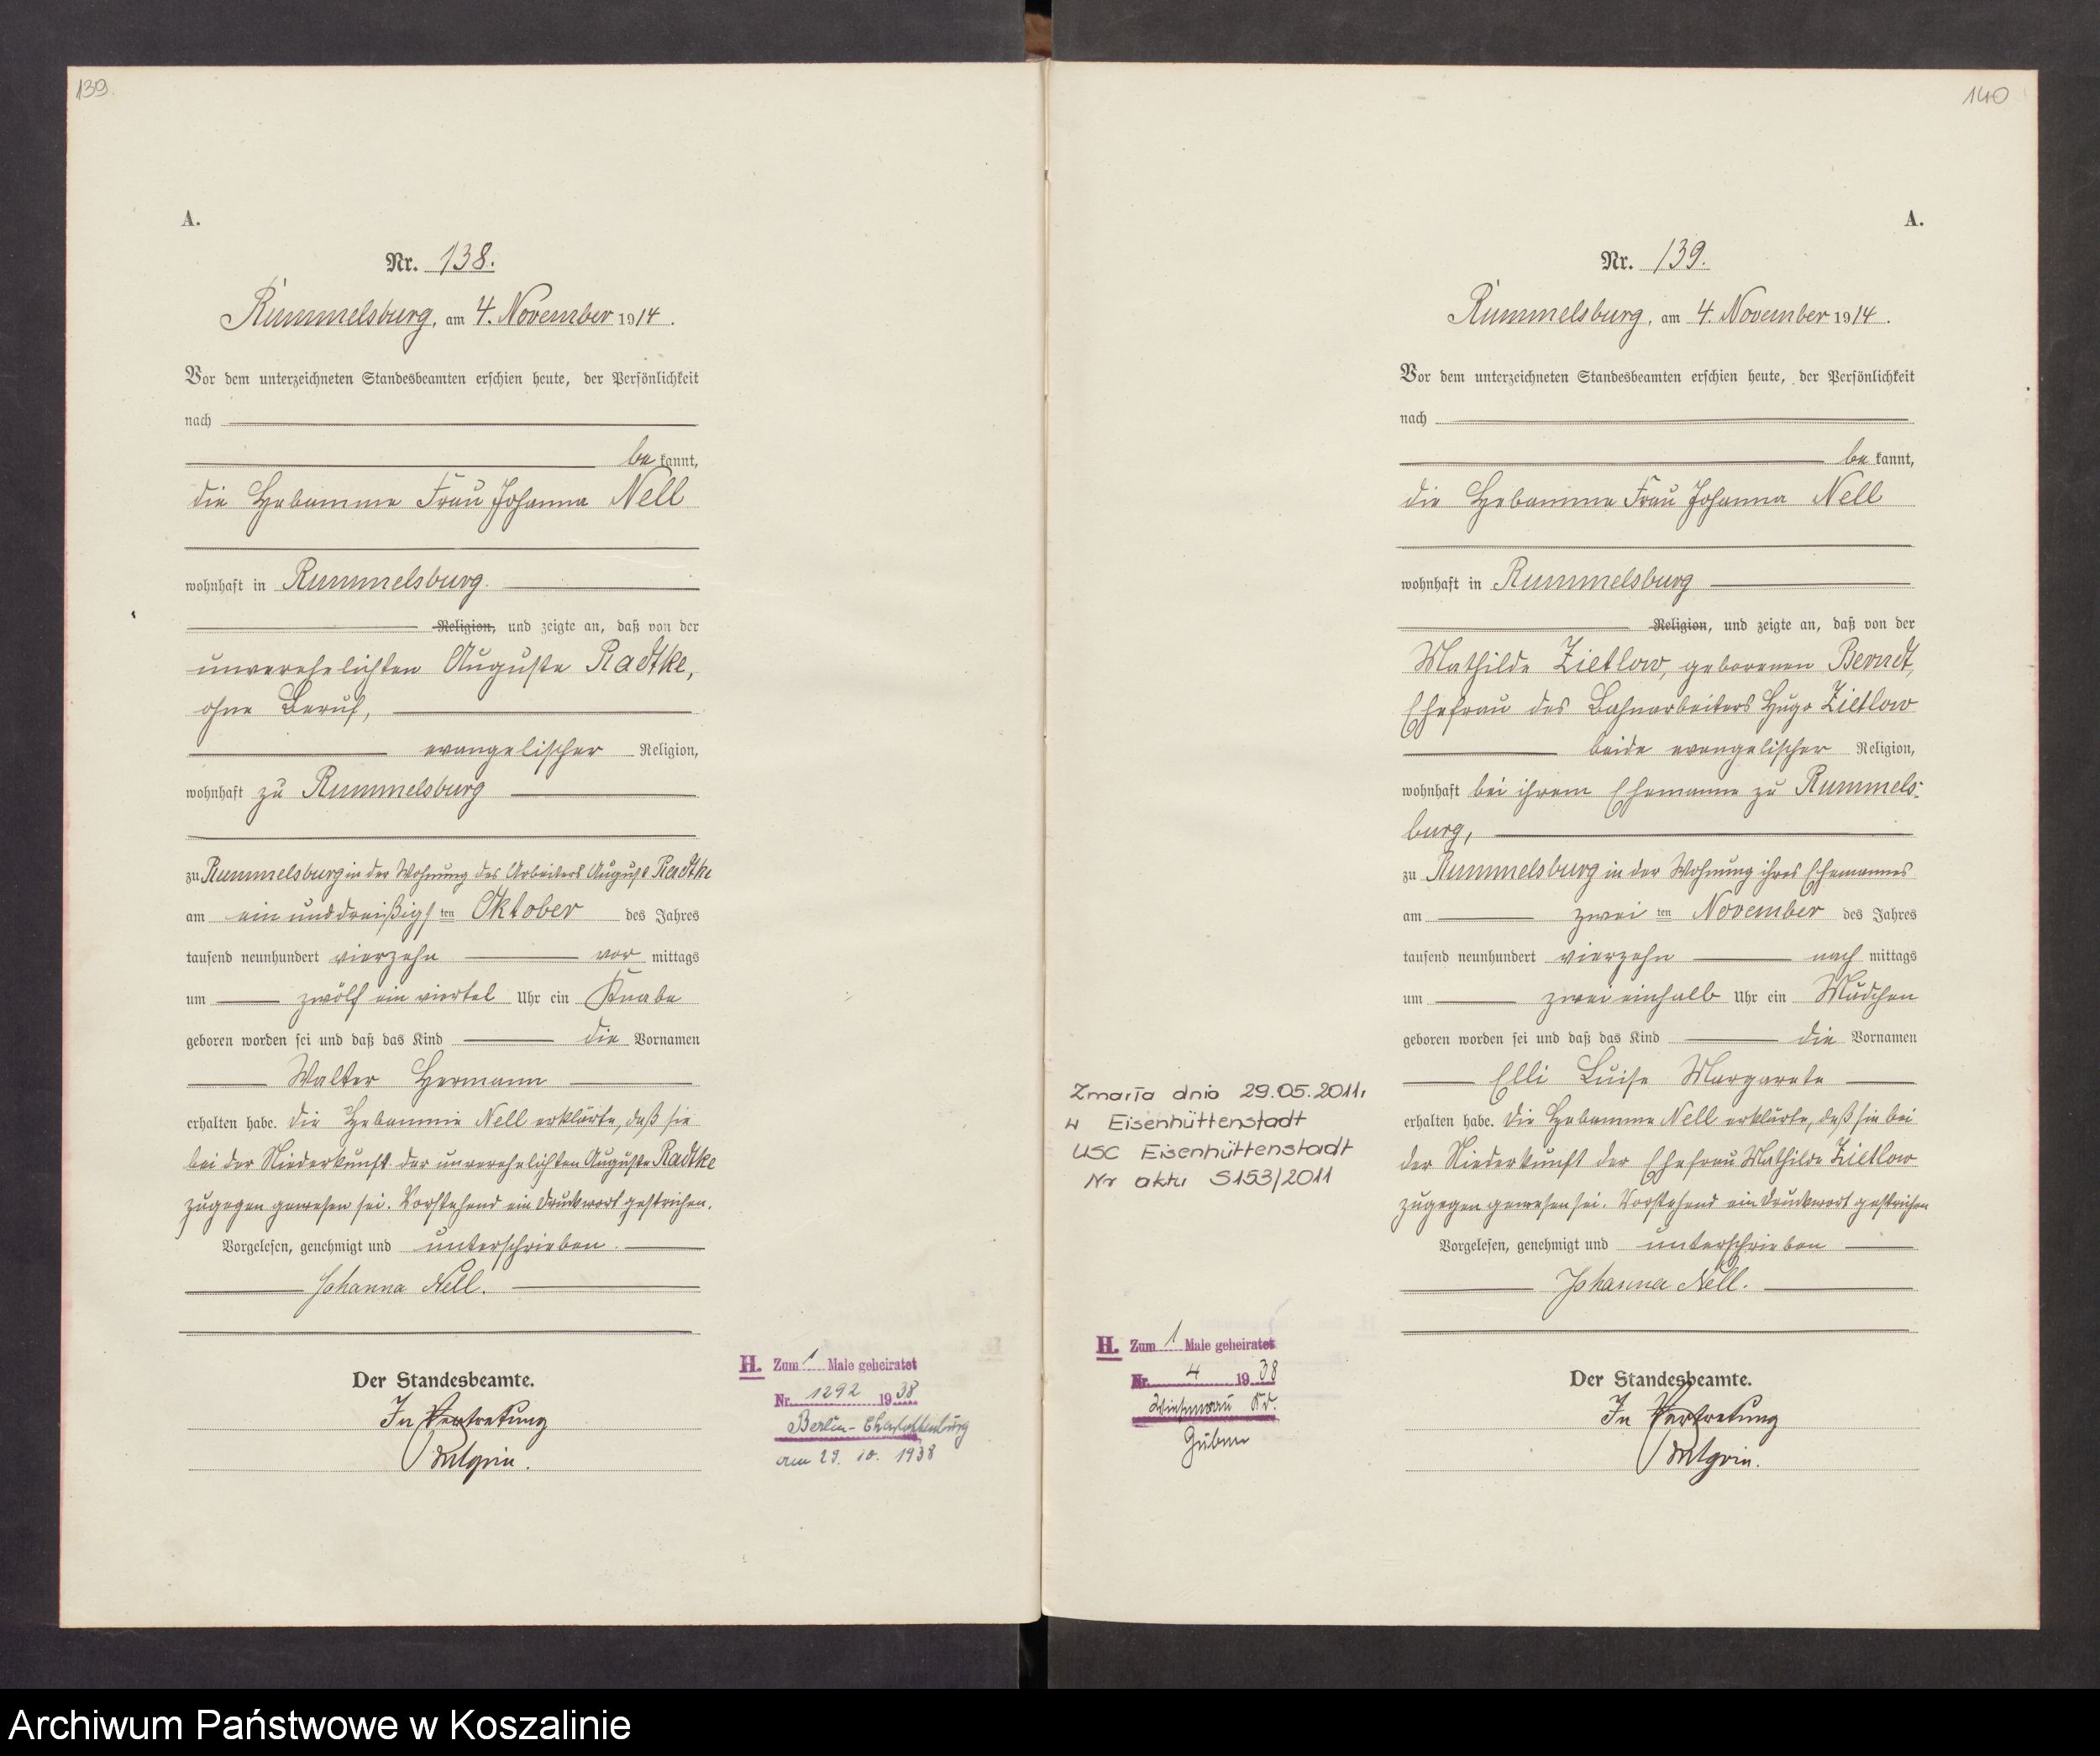 139.
A.
Nr. 138.
Rummelsburg, am 4. November 1914.
Vor dem unterzeichneten Standesbeamten erschien heute, der Persönlichkeit
nach
be kannt,
die Hebamme Frau Johanna Nell
wohnhaft in Rummelsburg.
Religion, und zeigte an, daß von der
unverehelichten Auguste Radtke,
ohne Beruf,
evangelischer Religion,
wohnhaft zu Rummelsburg
zu Rummelsburg in der Wohnung des Arbeiters August Radtke
am ein und dreißigsten Oktober des Jahres
tausend neunhundert vierzehn vor mittags
um zwölf ein viertel Uhr ein Knabe
geboren worden sei und daß das Kind die Vornamen
Walter Hermann
erhalten habe. Die Hebamme Nell erklärte, daß sie
bei der Niederkunft der unverehelichten Auguste Radtke
zugegen gewesen sei. Vorstehend ein Druckwort gestrichen.
Vorgelesen, genehmigt und unterschrieben.
Johanna Nell.
Der Standesbeamte.
In Vertretung
H. Zum 1 Male geheiratet
Nr. 1292 1938
Berlin-Charlottenburg
am 29. 10. 1938
140
A.
Nr. 139.
Rummelsburg, am 4. November 1914.
Vor dem unterzeichneten Standesbeamten erschien heute, der Persönlichkeit
nach
be kannt,
die Hebamme Frau Johanna Nell
wohnhaft in Rummelsburg
Religion, und zeigte an, daß von der
Mathilde Zietlow, geborenen Berndt,
Ehefrau des Bahnarbeiters Hugo Zietlow
beide evangelischer Religion,
wohnhaft bei ihrem Ehemanne zu Rummels-
burg,
zu Rummelsburg in der Wohnung ihres Ehemannes
am zwei ten November des Jahres
tausend neunhundert vierzehn nach mittags
um zwei einhalb Uhr ein Mädchen
geboren worden sei und daß das Kind die Vornamen
Elli Luise Margarete
erhalten habe. Die Hebamme Nell erklärte, daß sie bei
der Niederkunft der Ehefrau Mathilde Zietlow
zugegen gewesen sei. Vorstehend ein Druckwort gestrichen
Vorgelesen, genehmigt und unterschrieben
Johanna Nell.
Der Standesbeamte.
In Vertretung
Zmarła dnia 29.05.2011r
w Eisenhüttenstadt
USC Eisenhüttenstadt
Nr aktu S153/2011
H. Zum 1 Male geheiratet
Nr. 4 1938
Guben
Archiwum Państwowe w Koszalinie